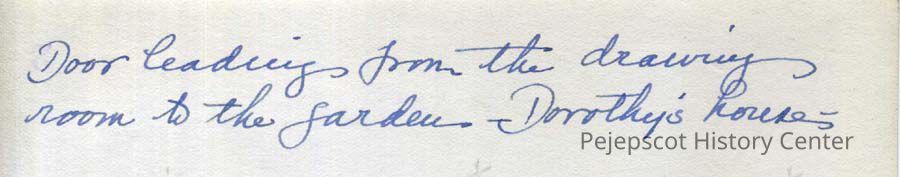 Door leading from the drawing
room to the garden - Dorothy's house -
Pejepscot History Center